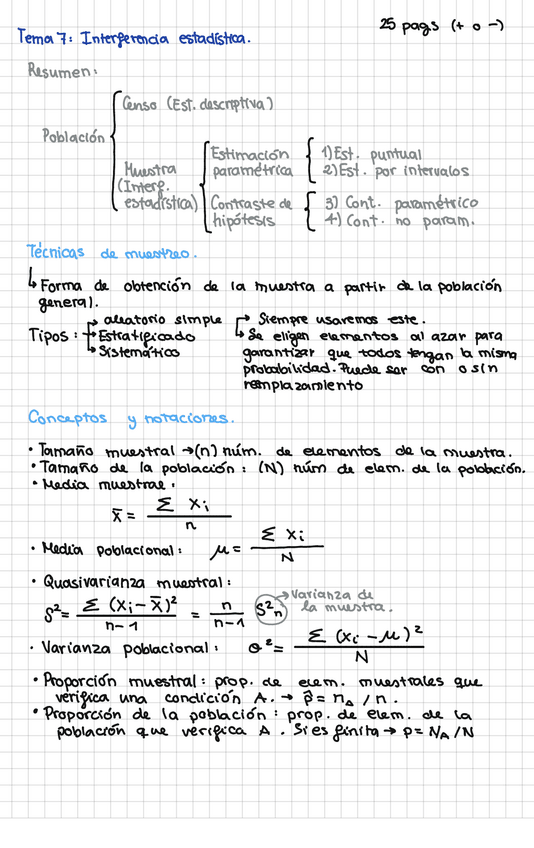 25 pags (+ o -)
Tema 7: Interferencia estadística.
Resumen:
Censo (Est. descriptiva)
Población
Muestra (Interf. estadística)
Estimación paramétrica
1) Est. puntual
2) Est. por intervalos
Contraste de hipótesis
3) Cont. paramétrico
4) Cont. no param.
Técnicas de muestreo.
↳ Forma de obtención de la muestra a partir de la población
general.
Tipos:
→ aleatorio simple
→ Estratificado
→ Sistemático
→ Siempre usaremos este.
↳ Se eligen elementos al azar para
garantizar que todos tengan la misma
probabilidad. Puede ser con o sin
remplazamiento
Conceptos y notaciones.
• Tamaño muestral → (n) núm. de elementos de la muestra.
• Tamaño de la población: (N) núm de elem. de la población.
• Media muestral:
x̄ = Σ xi / n
• Media poblacional: μ = Σ xi / N
• Quasivarianza muestral:
S² = Σ (xi - x̄)² / n-1 = n / n-1 S²n → Varianza de
la muestra.
• Varianza poblacional: σ² = Σ (xi - μ)² / N
• Proporción muestral: prop. de elem. muestrales que
verifica una condición A. → p̂ = nA / n.
• Proporción de la población: prop. de elem. de la
población que verifica A. Si es finita → p = NA / N